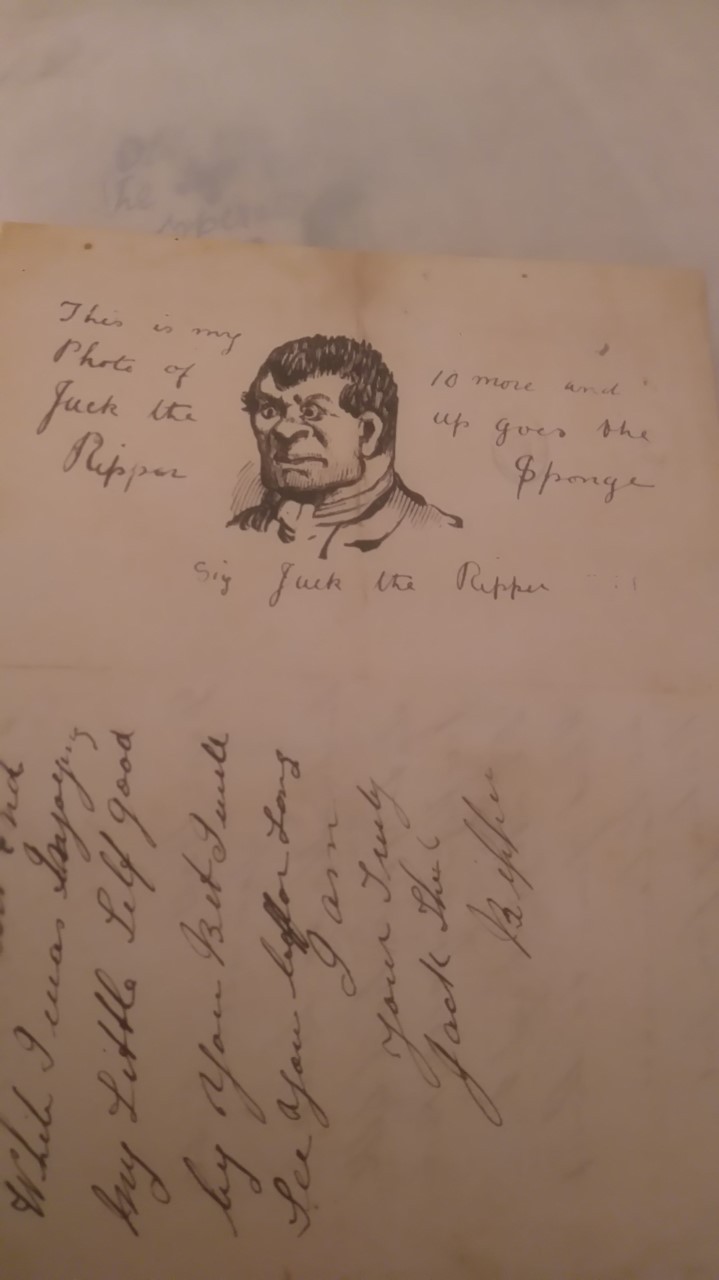 This is my
Photo of
Jack the
Ripper
10 more and
up goes the
Sponge
Sig Jack the Ripper
and
While I was Injoying
my Little Self good
by You Bet I will
See you before Long
I am
Your Truly
Jack The
Ripper